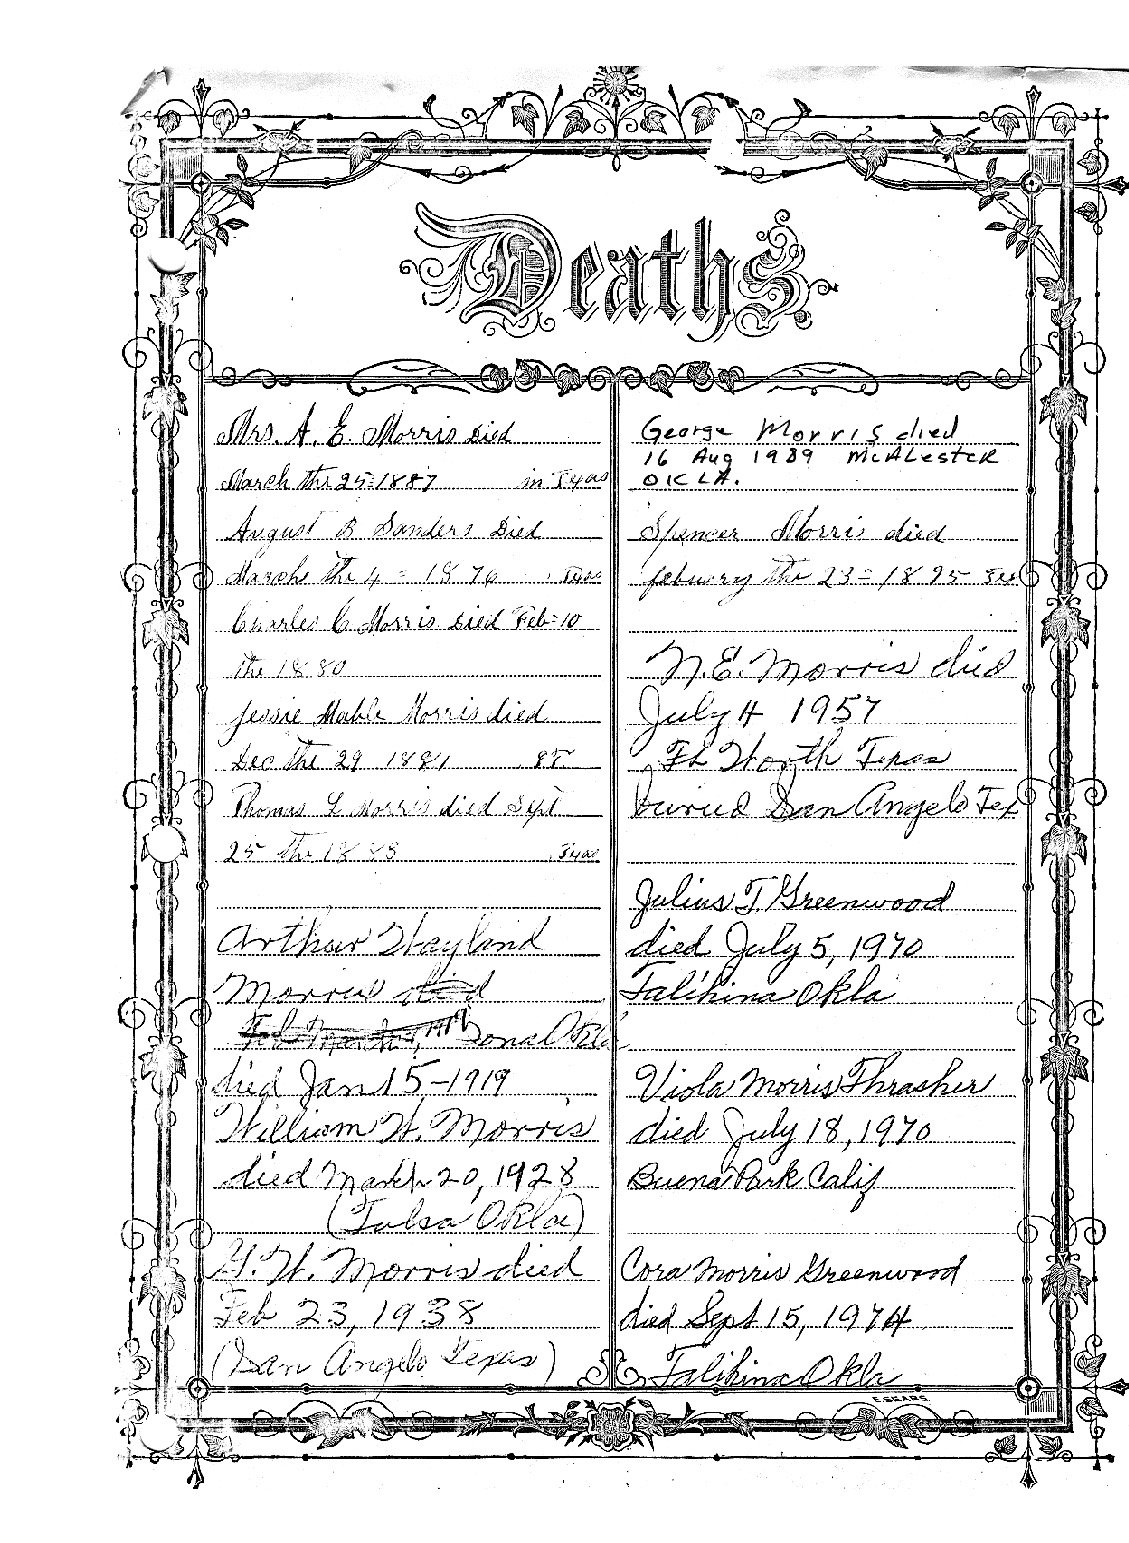 Deaths.
Mrs. A. E. Morris Died
March the 25=1887 in Texas
August B Sanders Died
March the 4 = 1876 Texas
Charles C Morris Died Feb=10
the 1880
Jessie Mable Morris died
Dec the 29 1881 85
Thomas L Morris died Sept
25 the 1883 Texas
Arthur Wayland
Morris died
Okla
died Jan 15-1919
William W. Morris
died March 20, 1928
(Tulsa Okla)
W. Morris died
Feb 23, 1938
(San Angelo Texas)
George Morris died
16 Aug 1989 McALester
OKLA.
Spencer Morris died
febuary the 23=1895 Tex
N.E. Morris died
July 4 1957
Ft Worth Texas
buried San Angelo Tex
Julius T. Greenwood
died July 5, 1970
Talihina Okla
Viola Morris Thrasher
died July 18, 1970
Buena Park Calif
Cora Morris Greenwood
died Sept 15, 1974
Talihina Okla
E SEARS.